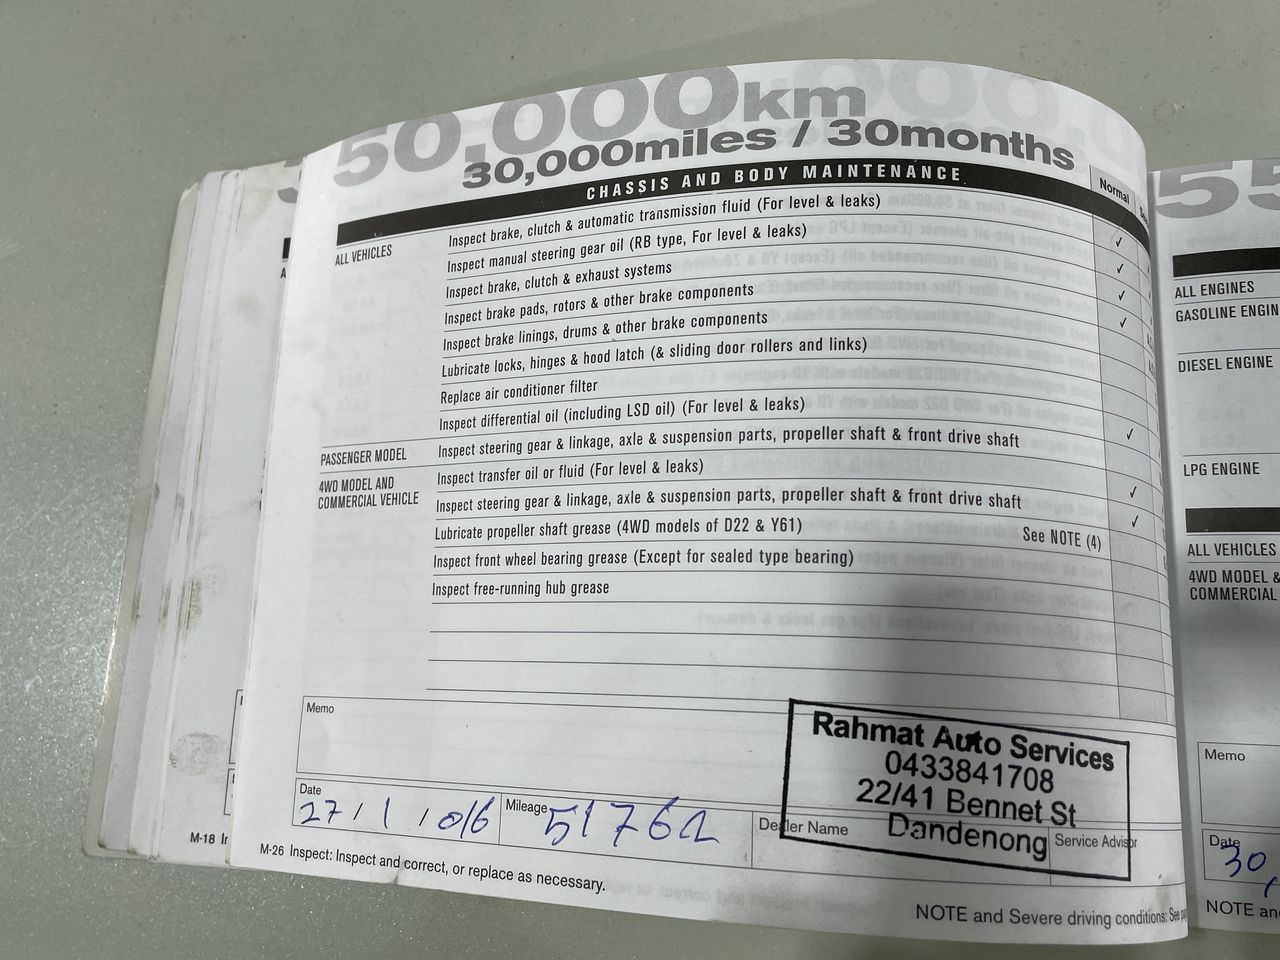 50,000km
30,000miles / 30months
CHASSIS AND BODY MAINTENANCE
Normal
ALL VEHICLES
Inspect brake, clutch & automatic transmission fluid (For level & leaks)
Inspect manual steering gear oil (RB type, For level & leaks) ✓
Inspect brake, clutch & exhaust systems ✓
Inspect brake pads, rotors & other brake components ✓
Inspect brake linings, drums & other brake components ✓
Lubricate locks, hinges & hood latch (& sliding door rollers and links)
Replace air conditioner filter
Inspect differential oil (including LSD oil) (For level & leaks)
PASSENGER MODEL
Inspect steering gear & linkage, axle & suspension parts, propeller shaft & front drive shaft ✓
4WD MODEL AND
COMMERCIAL VEHICLE
Inspect transfer oil or fluid (For level & leaks)
Inspect steering gear & linkage, axle & suspension parts, propeller shaft & front drive shaft ✓
Lubricate propeller shaft grease (4WD models of D22 & Y61) ✓
See NOTE (4)
Inspect front wheel bearing grease (Except for sealed type bearing)
Inspect free-running hub grease
Memo
Rahmat Auto Services
0433841708
22/41 Bennet St
Dandenong
Date
27/1/06
Mileage
51762
Dealer Name
Service Advisor
M-26 Inspect: Inspect and correct, or replace as necessary.
NOTE and Severe driving conditions: See
M-18
55
ALL ENGINES
GASOLINE ENGIN
DIESEL ENGINE
LPG ENGINE
ALL VEHICLES
4WD MODEL &
COMMERCIAL
Memo
Date
30
NOTE an